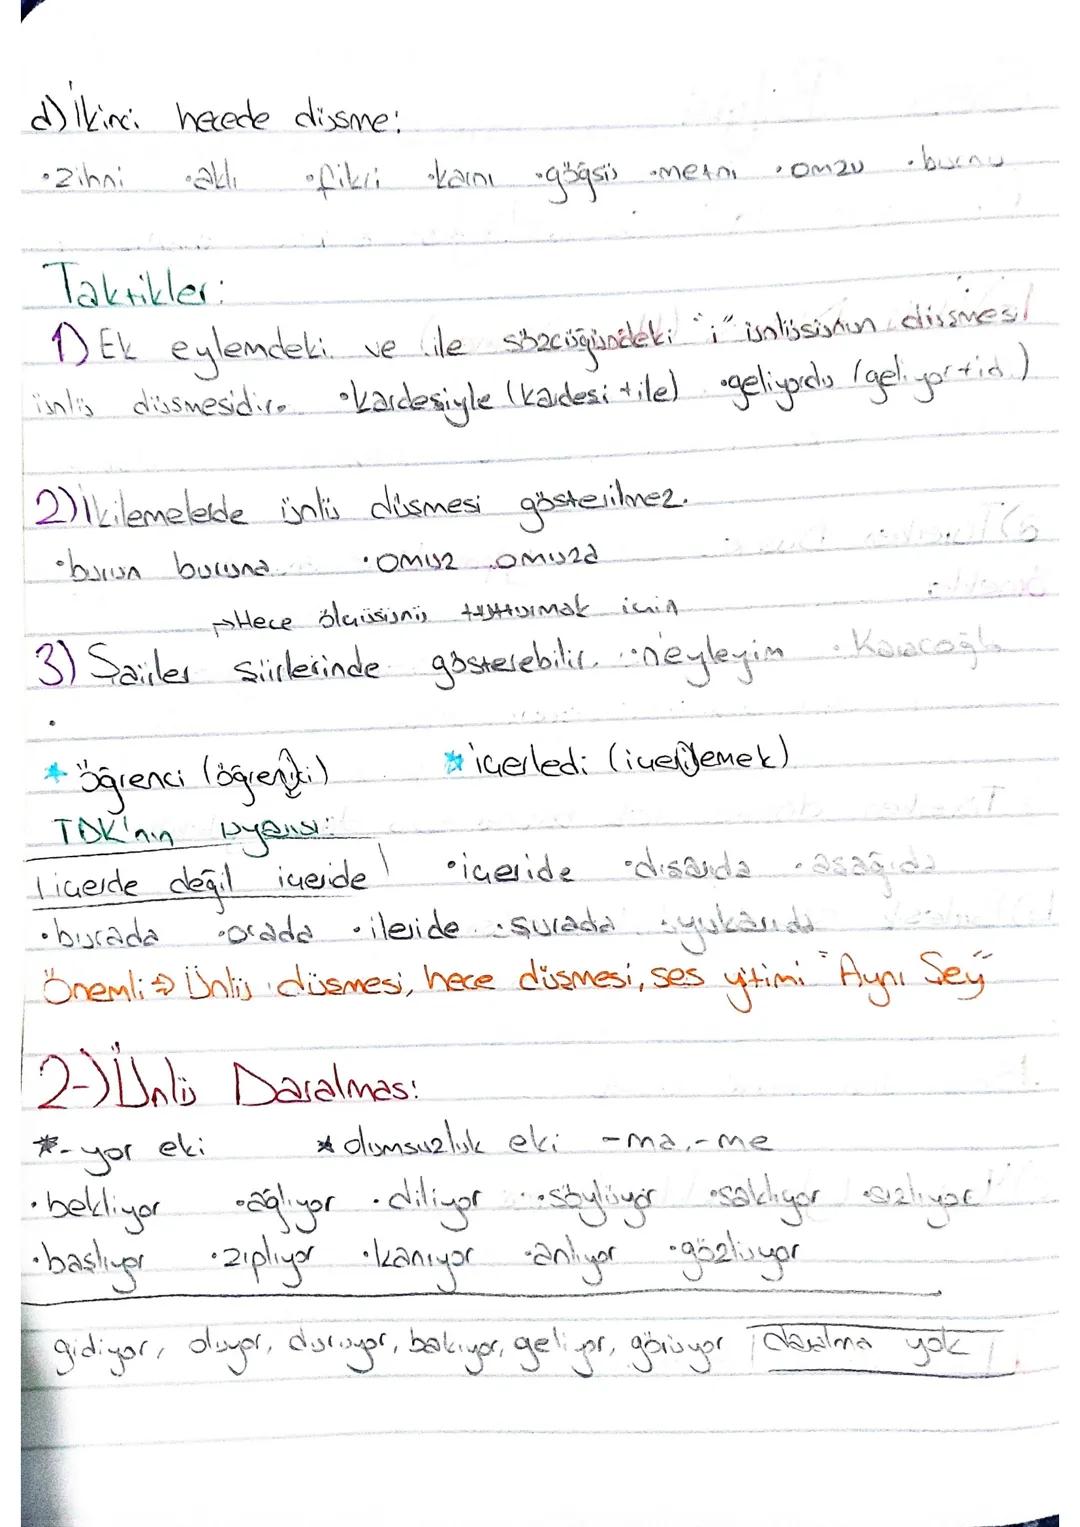 d) İkinci hecede düşme:
•zihni •aklı •fikri •karnı •göğsü •metni •omzu •burnu
Taktikler:
1) Ek eylemdeki ve ile sözcüğündeki "i" ünlüsünün düşmesi
ünlü düşmesidir. •kardeşiyle (kardeşi+ile) •geliyordu (geliyor+idi)
2) İkilemelerde ünlü düşmesi gösterilmez.
•burun buruna •omuz omuza
→Hece ölçüsünü tutturmak için
3) Şairler şiirlerinde gösterebilir. •neyleyim •Karacoğla
*öğrenci (öğrenici) *içerledi (içerilemek)
TDK'nın uyarısı:
içerde değil içeride! •içeride •dışarıda •aşağıda
•burada •orada •ileride •şurada •yukarıda
Önemli⇒ Ünlü düşmesi, hece düşmesi, ses yitimi "Aynı Şey"
2-) Ünlü Daralması:
*-yor eki *olumsuzluk eki -ma,-me
•bekliyor •ağlıyor •diliyor •söylüyor •saklıyor •sızlıyor
•başlıyor •zıplıyor •kanıyor •anlıyor •gözlüyor
gidiyor, oluyor, duruyor, bakıyor, geliyor, görüyor daralma yok